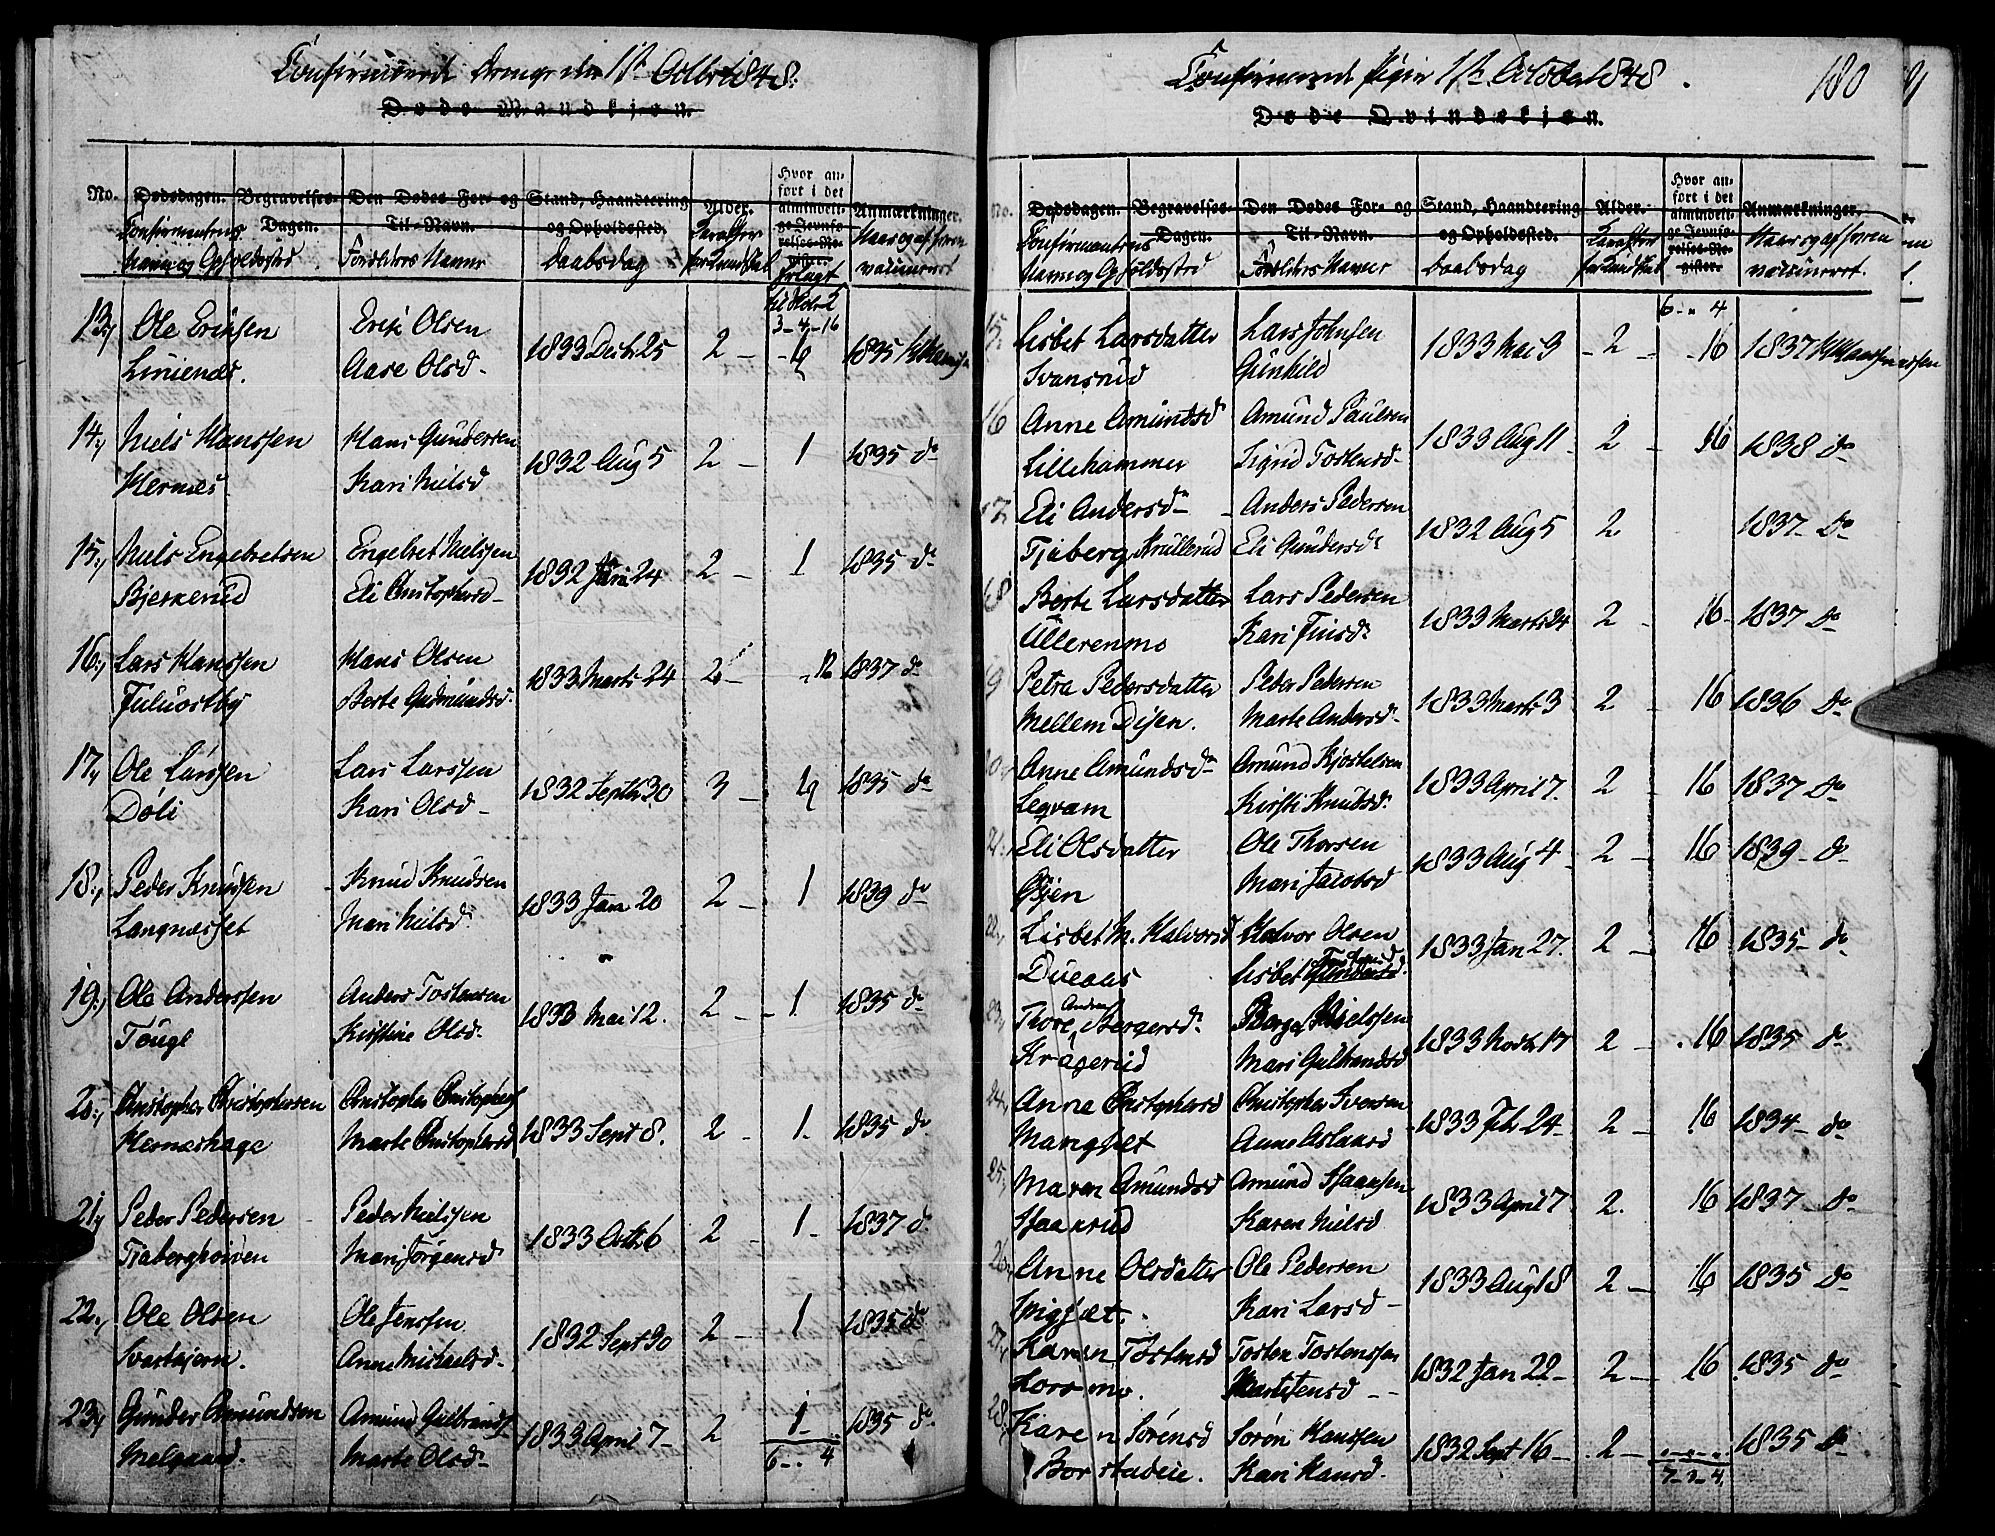 Confirmerede Drenge den 1ste Octbr 1848.
Døde Mandkjøn.
No. Dødsdagen. Begravelses-Dagen. Den Dødes For- og Til-Navn. Stand, Haandtering og Opholdsted. Alder. Hvor anført i det almindelige Jevnførelses-Register. Anmærkninger.
Confirmantens Navn og Opholdsted Forældres Navne Daabsdag
3-4-16
13, Ole Erihsen Erik Olsen 1833 Decbr 25 2 1835
Liniences. Aase Olsd
14, Niels Hanssen Hans Gundersen 1832 Aug 5 2 1 1835 do
Hernæs Kari Nielsd
15, Niels Engebretsen Engebret Nielssen 1832 24 2 1 1835 do
Bjerkerud Eli Christophersd
16, Lars Hanssen Hans Olsen 1833 Marts 24 2 12 1837 do
Juliustby Berte Gudmundsd
17, Ole Larssen Lars Larssen 1832 Septbr 30 3 1835 do
Døli Kari Olsd
18, Peder Knudsen Knud Knudsen 1833 Jan 20 2 1 1839 do
Langnæsset Mari Nielsd
19, Ole Anderssen Anders Tostensen 1833 Mai 12. 2 1 1835 do
Tougl Kirstine Olsd
20, Christopher Christophersen Christopher Christophers 1833 Sept 8. 2 1 1835 do
Herneshage Marte Christophersd
21, Peder Pedersen Peder Nielssen 1833 Octbr 6 2 1 1837 d
Tiaberghoiden Mari Jørgensd
22, Ole Olsen Ole Jenssen 1832 Sept 30 2 1 1835 do
Svartbjern. Anne Michaelsd
23, Gunder Amundsen Amund Gulbrands 1833 April 7 2 1 1835 do
Melgaard. Marte Olsd
6 - 4
Confirmerede Piger 1ste October 1848.
180
Døde Qvindekjøn.
No. Dødsdagen. Begravelses-Dagen. Den Dødes For- og Til-Navn. Stand, Haandtering og Opholdsted. Alder. Hvor anført i det almindelige Jevnførelses-Register. Anmærkninger.
Confirmantens Navn og Opholdsted Forældres Navne Daabsdag
6 - 4
15, Lisbet Larsdatter Lars Johnsen 1833 Mai 9 2 16 1837
Svansrud Gunhild
16 Anne Amundsd Amund Paulsen 1833 Aug 11 2 16 1838 do
Lillehammer Sigrid Tostensd
17, Eli Andersd Anders Pedersen 1832 Aug 5 2 1837 do
Tjaberg Krullerud Eli Gundersd
18 Berte Larsdatter Lars Pedersen 1833 Marts 24 2 16 1837 do
Ullerenmo Kari Finsd
19 Petra Pedersdatter Peder Pedersen 1833 Marts 3 2 16 1836 do
Mellem Disen. Marte Andersd
20, Anne Amundsd Amund Kjostelsen 1833 April 7. 2 16 1837 do
Legram Kirsti Knudsd
21, Eli Olsdatter Ole Thorsen 1833 Aug 4 2 16 1839 do
Øien Mari Jacobsd
22, Lisbet M. Halvorsd Halvor Olsen 1833 Jan 27. 2 16 1835 do
Dueaas Lisbet
23, Thore Bergersd Berger Nielssen 1833 Novbr 17 2 16 1835 do
Kragerud Mari Gulbrandsd
24, Anne Christophersd Christopher Svensen 1833 Feb 24 2 16 1834 do
Mangset Anne Aslaksd
25, Maren Amundsd Amund Haansen 1833 April 7 2. 16 1837 do
Haanrud Karen Nielsd
26, Anne Olsdatter Ole Pedersen 1833 Aug 18 2 16 1835 do
Spigset. Kari Larsd
27, Karen Tostensd Tosten Tostenssen 1832 Jan 22 2 16 1835 do
Horsmo. Marte Jensd
28, Karen Sørensd Søren Hanssen 1832 Sept 16 2 1835 do
Borstadeie. Kari Hansd.
7-3-4